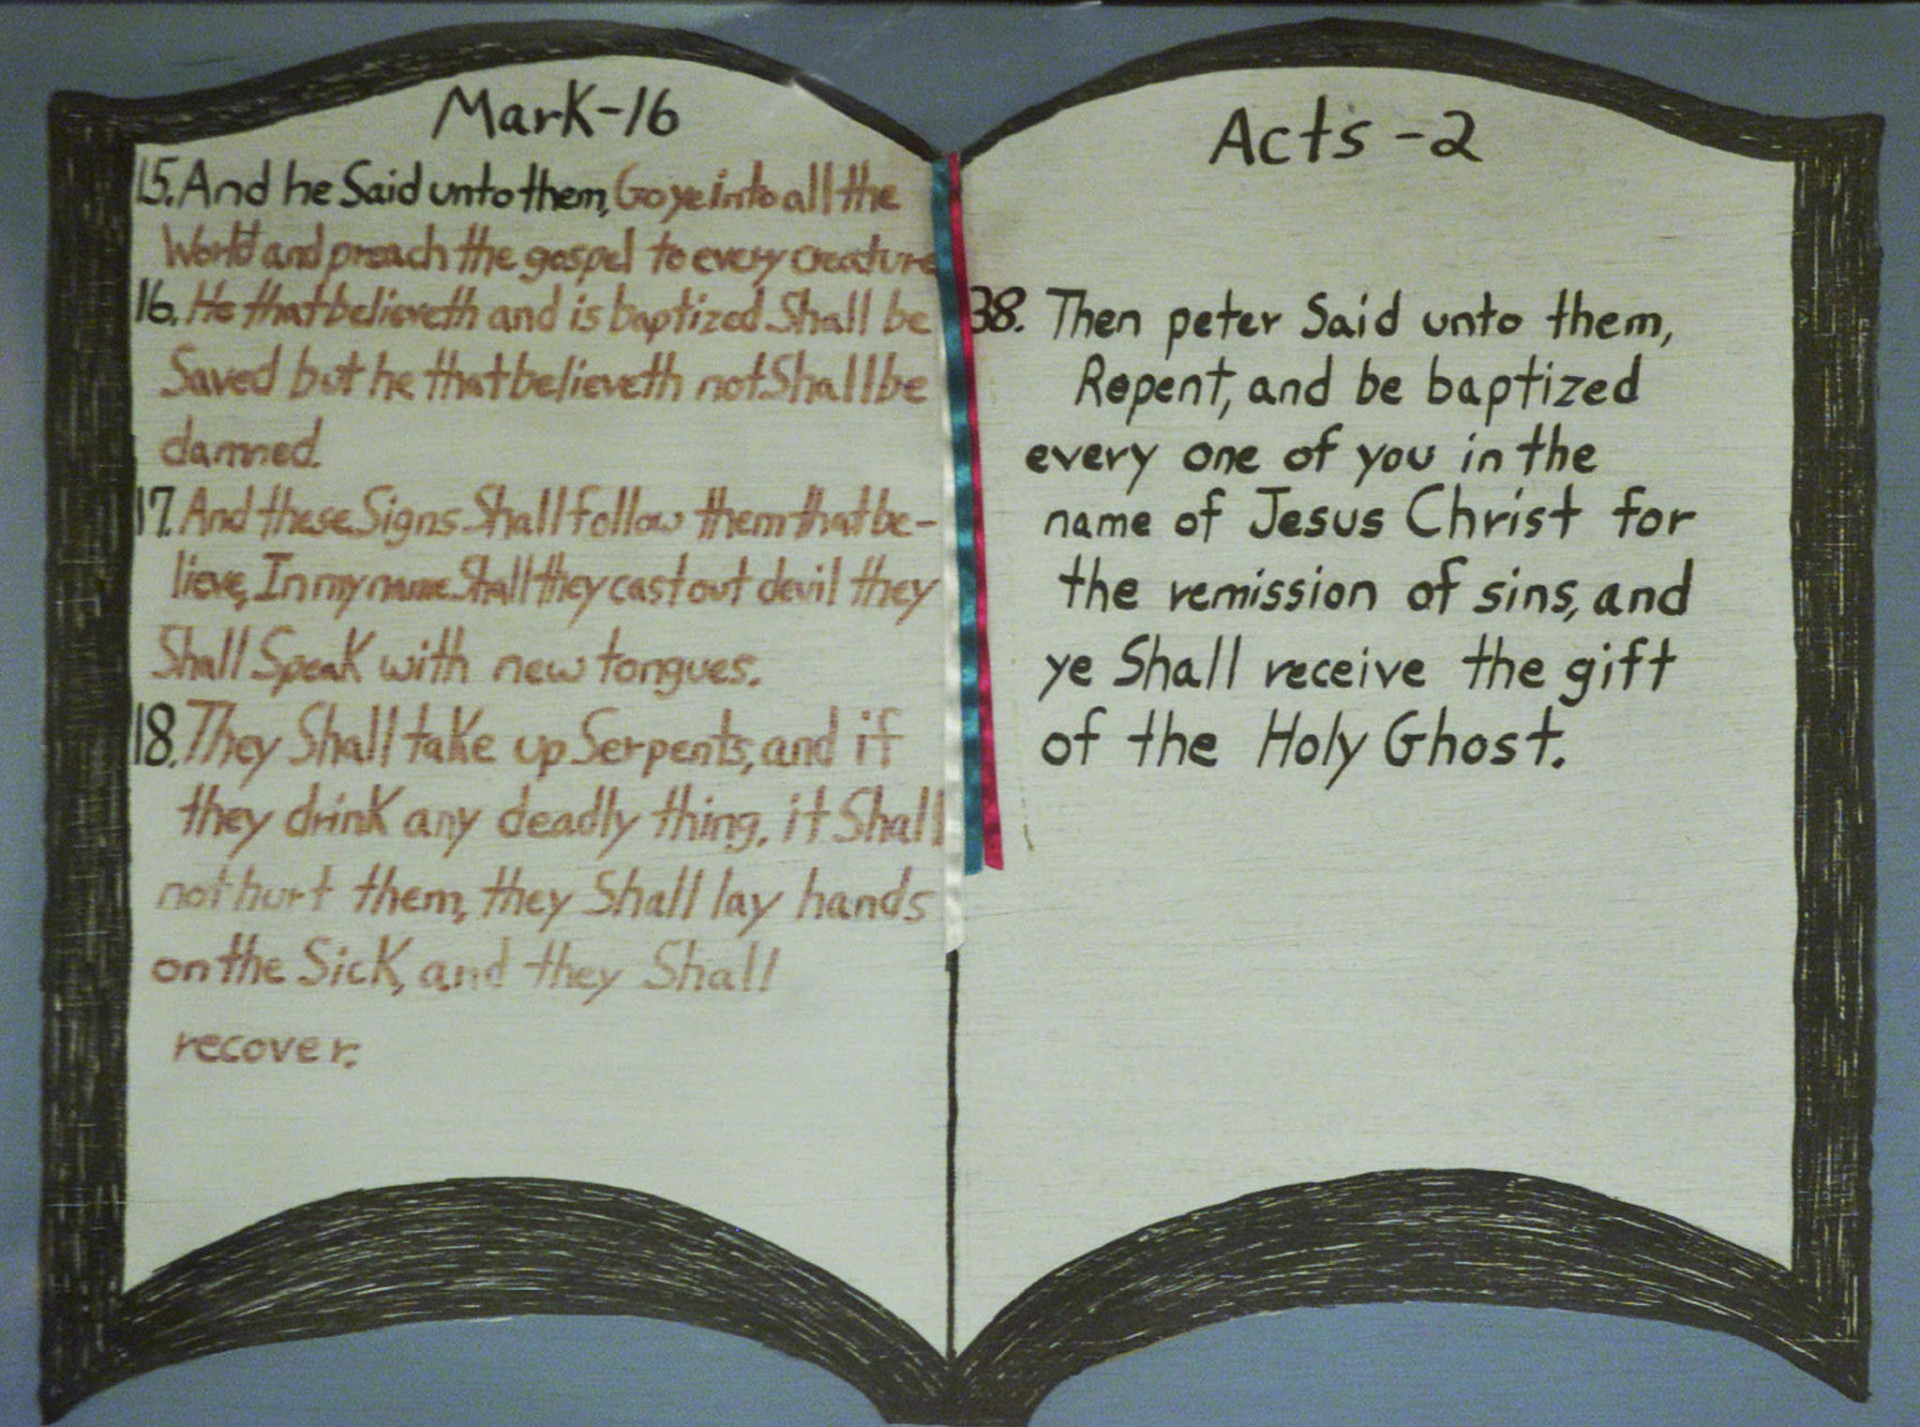 Mark-16
15. And he Said unto them, Go ye into all the
World and preach the gospel to every creature
16. He that believeth and is baptized Shall be
Saved but he that believeth not Shall be
damned.
17. And these Signs Shall follow them that be-
lieve, In my name Shall they cast out devil they
Shall Speak with new tongues.
18. They Shall take up Serpents, and if
they drink any deadly thing, it Shall
not hurt them, they Shall lay hands
on the Sick, and they Shall
recover.
Acts-2
38. Then peter Said unto them,
Repent, and be baptized
every one of you in the
name of Jesus Christ for
the remission of sins, and
ye Shall receive the gift
of the Holy Ghost.